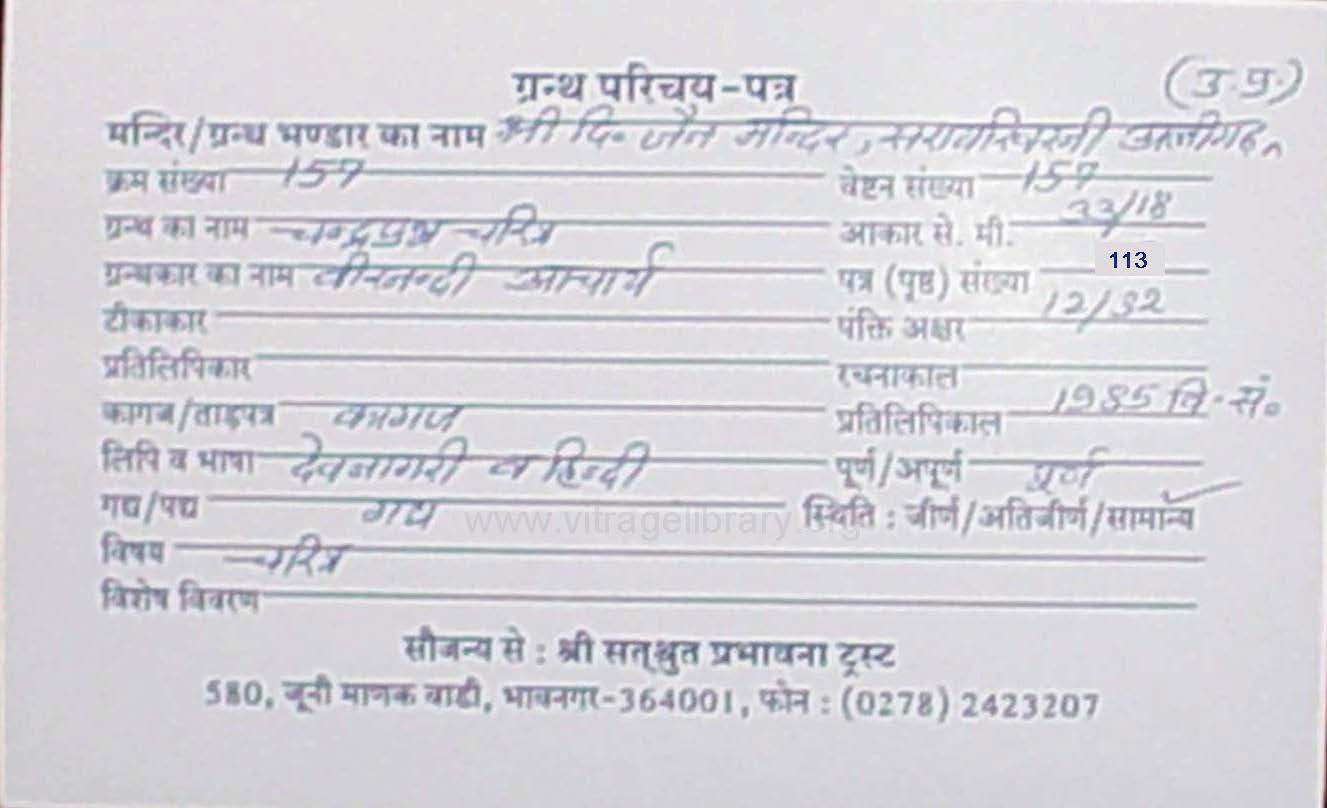 ग्रन्थ परिचय-पत्र (उ.प्र.)
मन्दिर/ग्रन्थ भण्डार का नाम श्री दि० जैन मन्दिर, अलीगढ़
क्रम संख्या 157 वेष्टन संख्या 157
ग्रन्थ का नाम चन्द्रप्रभ चरित्र आकार से. मी. 33/18
ग्रन्थकार का नाम वीरनन्दी आचार्य पत्र (पृष्ठ) संख्या 113
टीकाकार पंक्ति अक्षर 12/32
प्रतिलिपिकार रचनाकाल
कागज/ताड़पत्र कागज प्रतिलिपिकाल 1985 वि. सं०
लिपि व भाषा देवनागरी व हिन्दी पूर्ण/अपूर्ण पूर्ण
गद्य/पद्य गद्य स्थिति : जीर्ण/अतिजीर्ण/सामान्य
www.vitragelibrary.org
विषय चरित्र
विशेष विवरण
सौजन्य से : श्री सत्श्रुत प्रभावना ट्रस्ट
580, जूनी माणक वाडी, भावनगर-364001, फोन : (0278) 2423207